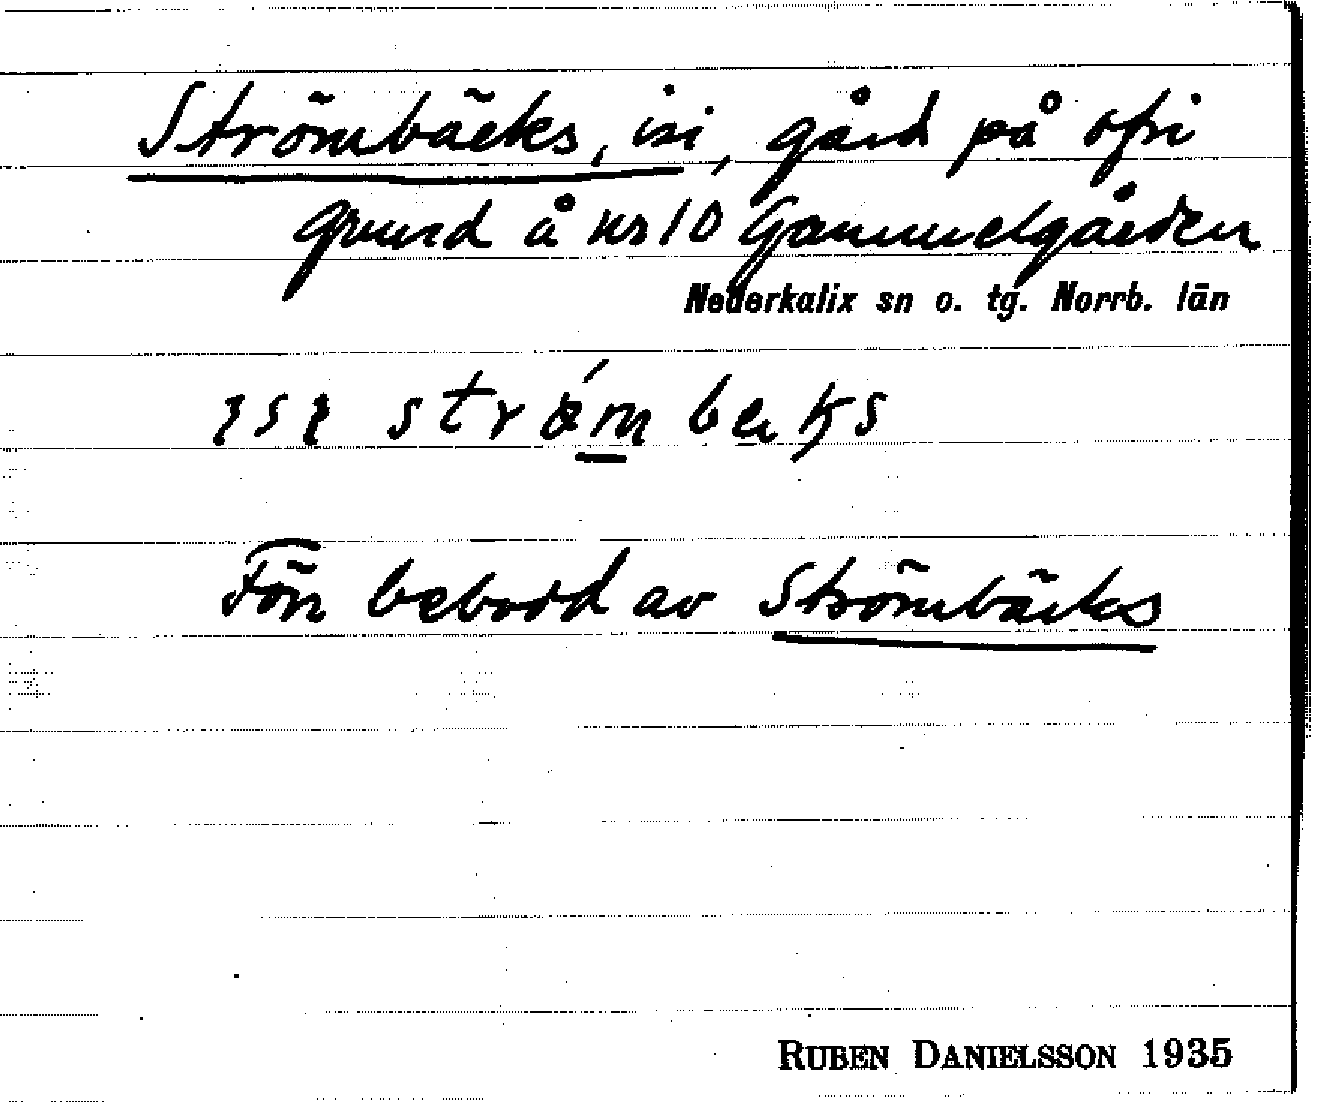 Strömbäcks, isi, gård på ofri
grund å nr 10 Gammelgården
Nederkalix sn o. tg. Norrb. län
ɪsɪ strǿm bæks
Förr bebodd av Strömbäcks
RUBEN DANIELSSON 1935